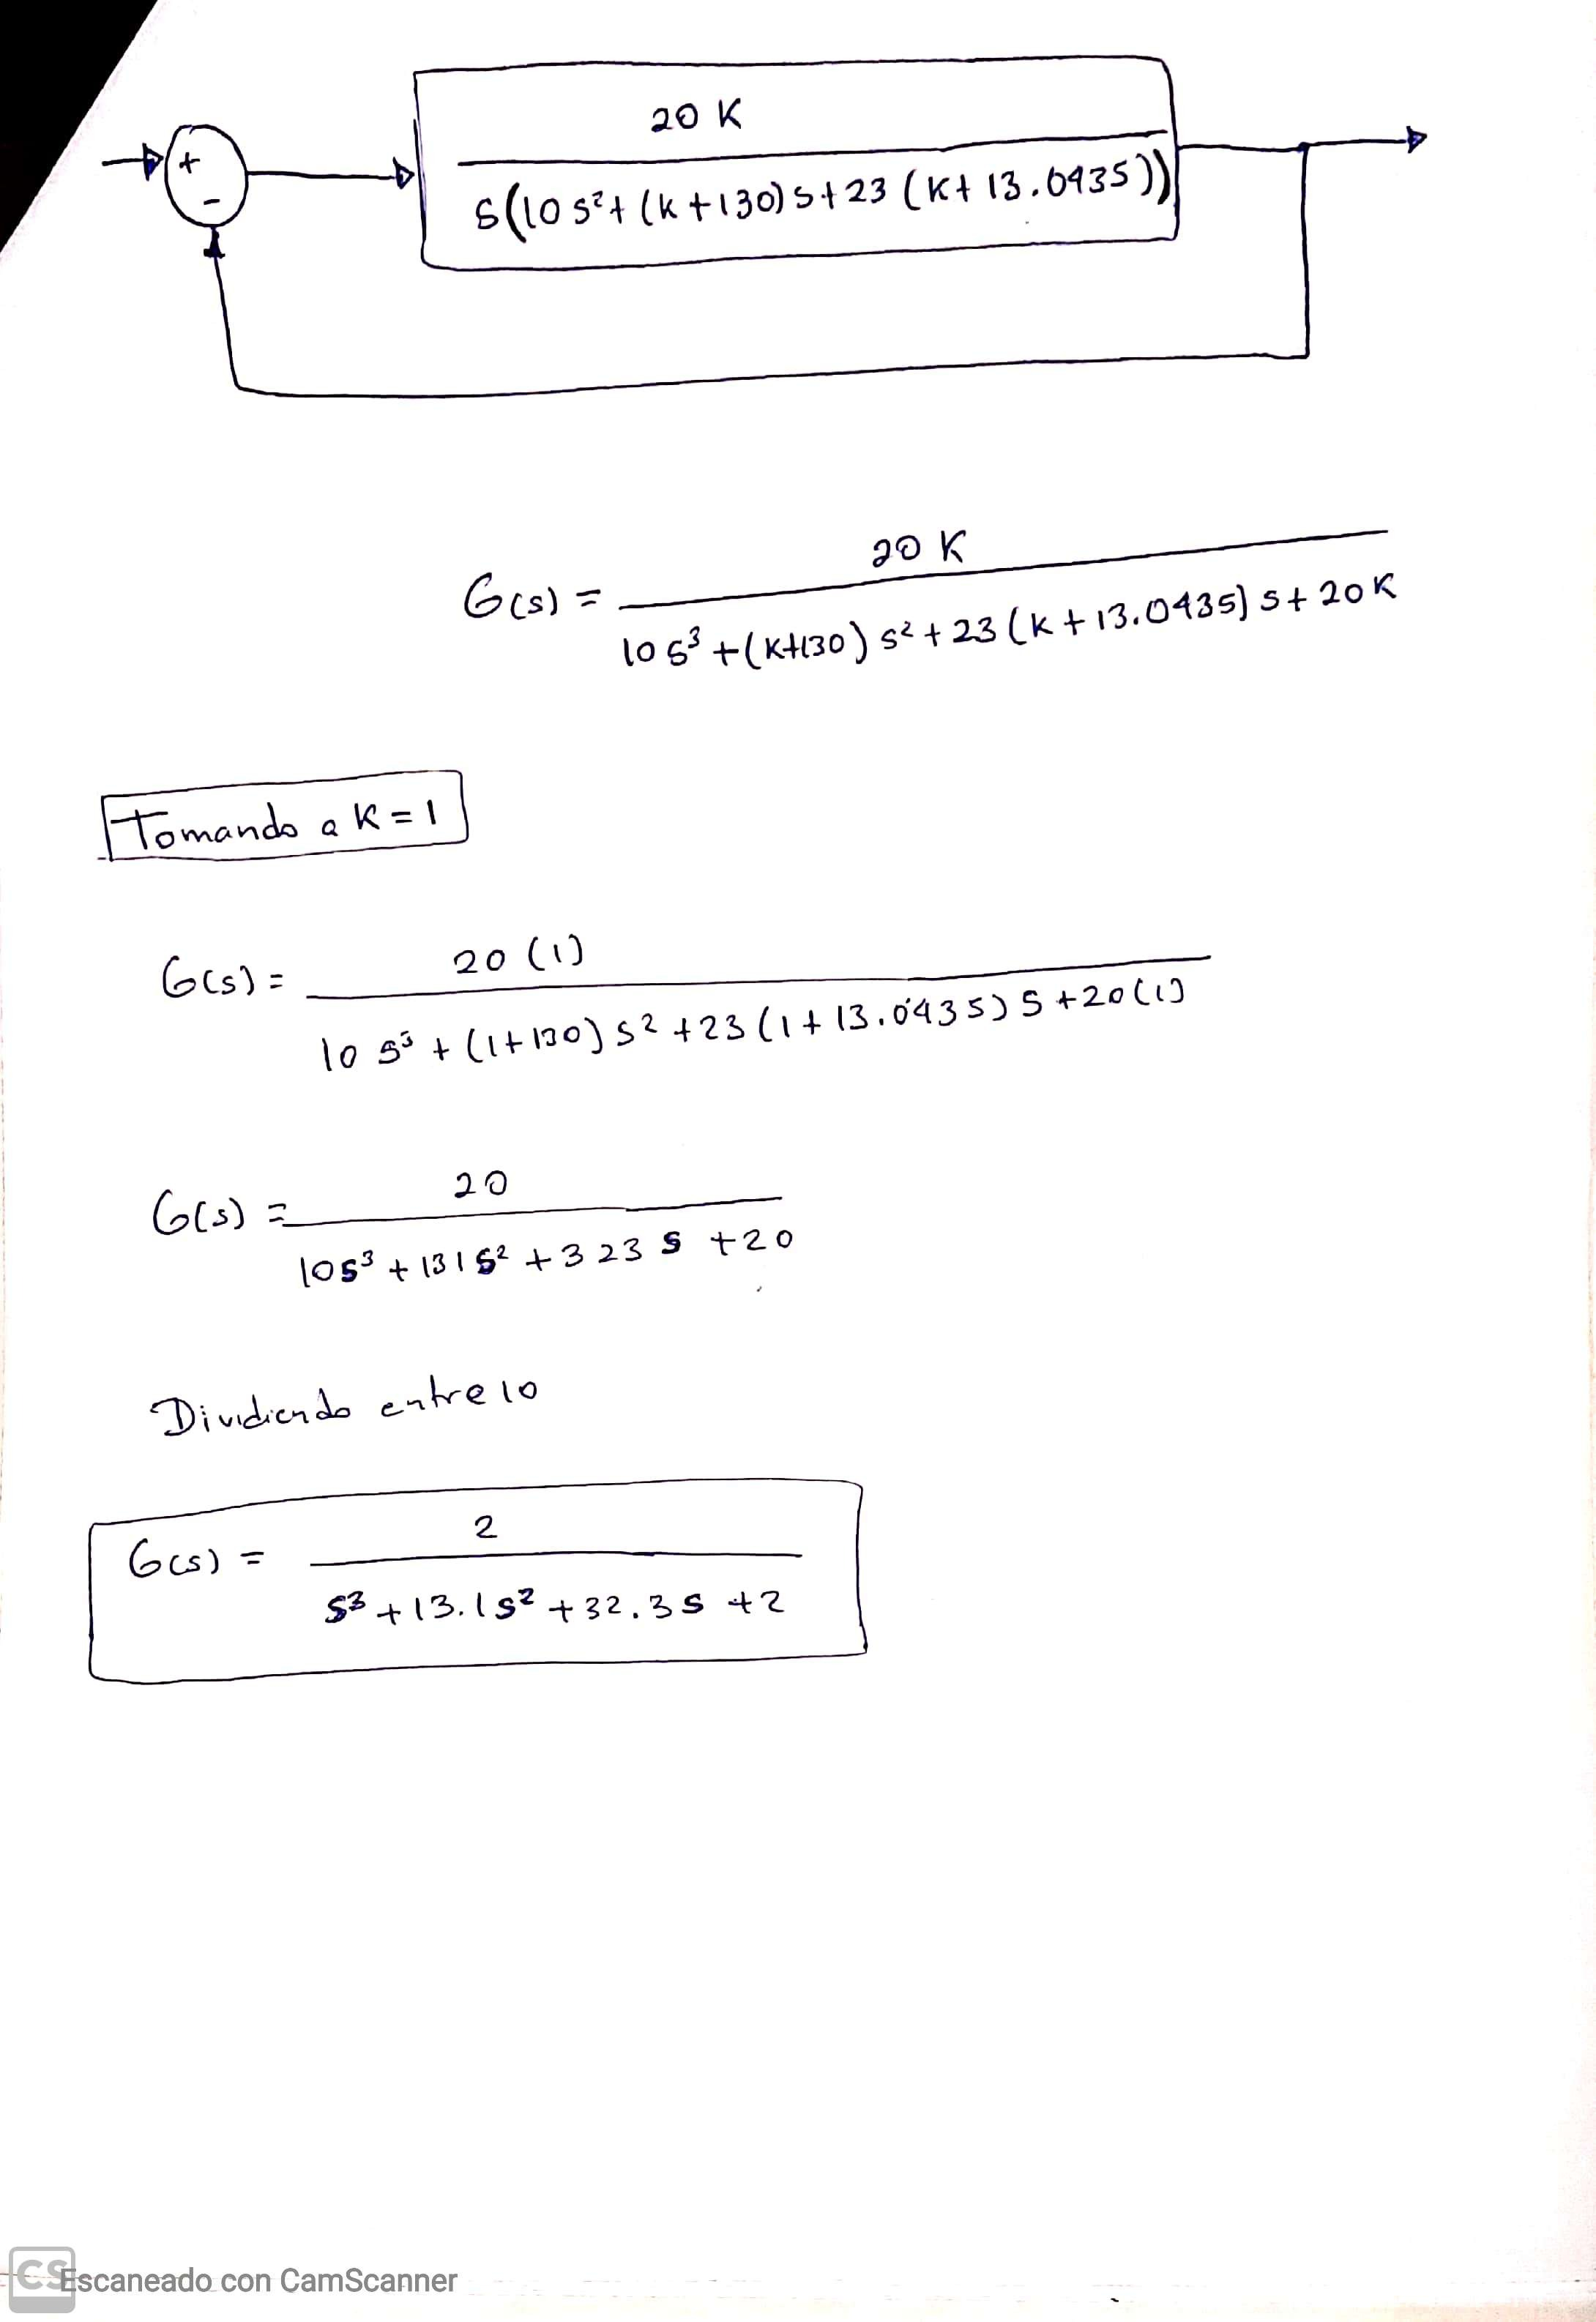 +
-
20 K
s(10 s²+ (K+130) s+23 (K+ 13.0435))
G(s) =
20 K
10 s³ +(K+130) s² + 23 (K + 13.0435) s+ 20K
Tomando a K = 1
G(s) =
20 (1)
10 s³ + (1+130) s² +23 (1+ 13.0435) s +20(1)
G(s) =
20
10s³ + 131s² + 323 s +20
Dividiendo entre 10
G(s) =
2
s³ + 13.1s² + 32.3s +2
CS Escaneado con CamScanner